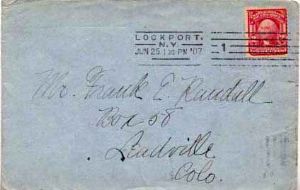 LOCKPORT,
N.Y.
JUN 25 1 30 PM '07
1
Mr. Frank E Randall
Box 58
Leadville
Colo.